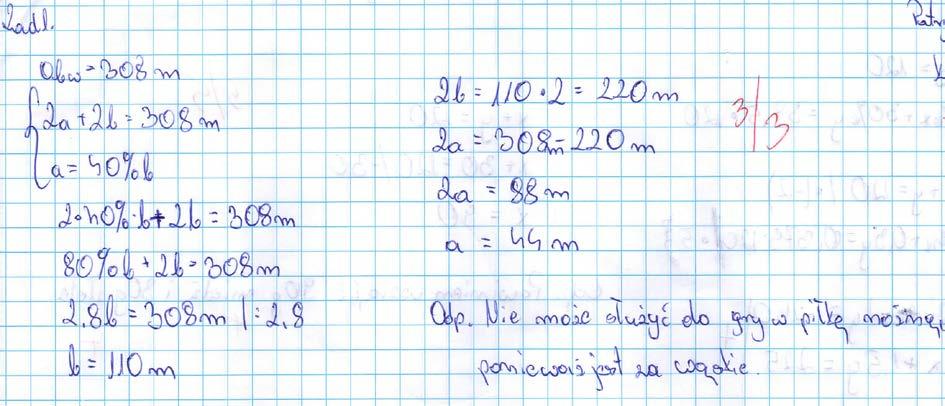 Zad1.
Obw = 308 m
2a + 2b = 308 m
a = 40% b
2·40%·b + 2b = 308 m
80% b + 2b = 308 m
2,8b = 308 m |: 2,8
b = 110 m
2b = 110 · 2 = 220 m
2a = 308m - 220 m
2a = 88 m
a = 44 m
Odp. Nie może służyć do gry w piłkę nożną,
ponieważ jest za wąskie.
3/3